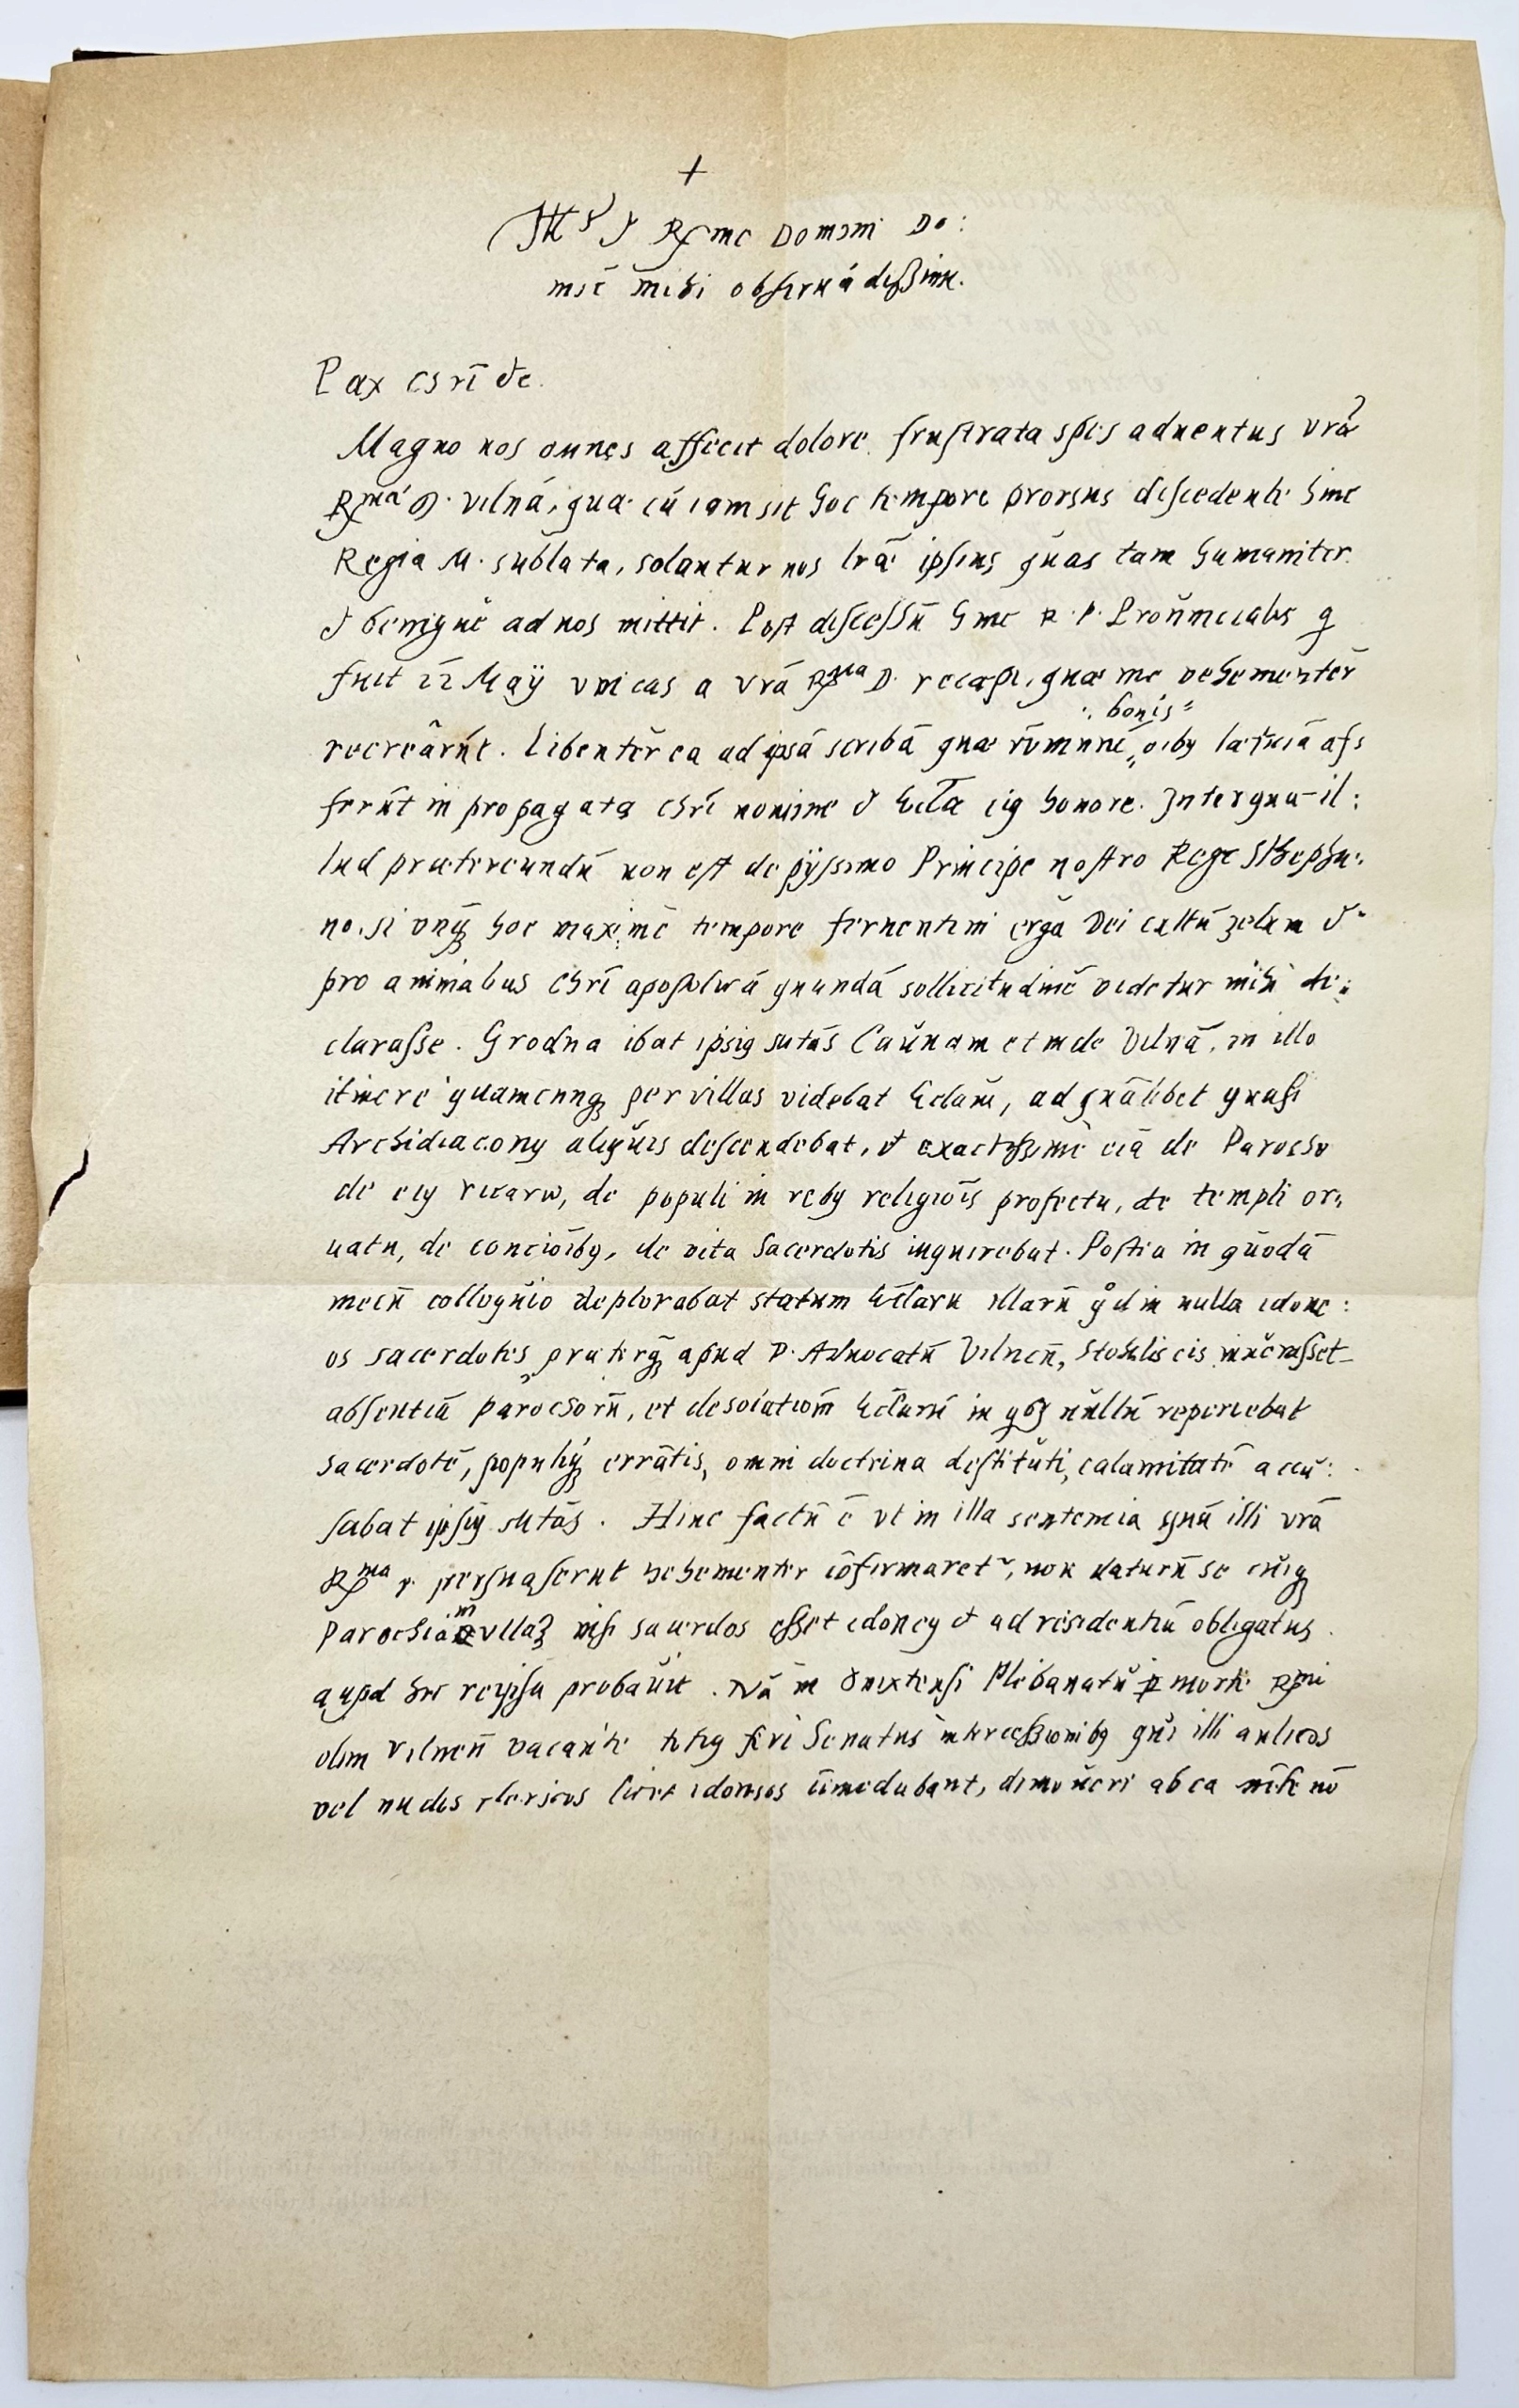 +
Rsme Domini Do:
mīe mihi obseruādissime.
Pax Chrī &c.
Magno nos omnes affecit dolore frustrata spes aduentus vrā
Rmā D. Vilnā, qua cū iam sit hoc tempore prorsus discedente hinc
Regia M. sublata, solantur nos lrā ipsius quas tam humaniter
& benigne ad nos mittit. Post discessū hinc R. P. Prouincialis q
fuit 22 Maÿ vnicas a vrā Rma D. recepi, quæ me vehementer
recreārūt. Libenter ea ad ipsā scribā quæ bonis oīby lætitiā af:
ferūt in propagata Chrī nomine & Eccla eig honore. Inter quæ il:
lud prætereundū non est de pÿssimo Principe nostro Rege Stepha:
no, si vnq hoc maxime tempore feruentem erga Dei cultū zelum &
pro animabus Chrī apostolicā quandā sollicitudinē videtur mihi de:
clarasse. Grodna ibat ipsig Mtās Caunam et inde Vilnā, in illo
itinere quamcunq per villas videbat Ecclam, ad quālibet quasi
Archidiacony aliquis descendebat, & exactissime etiā de Parocho
de eiy vicario, de populi in reby religiōis profectu, de templi or:
natu, de concioīby, de vita Sacerdotis inquirebat. Postea in quodā
mecū colloquio deplorabat statum Ecclarū illarū qd in nulla idone:
os sacerdotes præterq apud D. Aduocatū Vilneñ, Stokliscis inuenisset
absentiā parochorū, et desolatiom Ecclarū in qbz nullū reperiebat
sacerdotē, populiq errātis, omni doctrina destituti, calamitatē accu:
sabat ipsig Mtās. Hinc factū ē vt in illa sententia quā illi vrā
Rma p. persuaserat vehementer cōfirmaret, non daturū se cuiq
Parochiam vllaz nisi sacerdos esset idoney & ad residentiā obligatus.
 probauit. Nā in Plebanatu p morte Rmi
olim Vilneñ vacante totig feri Senatus intercessionibg qui illi aulicos
vel nudos clericos licet idoneos cōmēdabant, dimoueri ab ea mēte nō